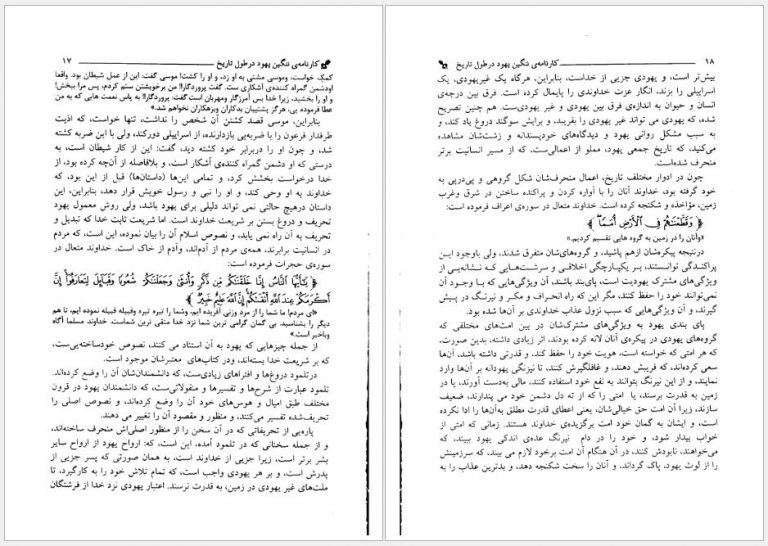 کارنامه‌ی ننگین یهود در طول تاریخ ۱۷
کمک خواست، وموسی مشتی به او زد، و او را کشت! موسی گفت: این از عمل شیطان بود. واقعا
اودشمن گمراه کننده‌ی آشکاری ست. گفت پروردگارا! من برخویشتن ستم کردم، پس مرا ببخش!
و او را بخشید، زیرا خدا بس آمرزگار ومهربان است گفت: پروردگارا! به پاس نعمت هایی که به من
عطا فرموده یی، هرگز پشتیبان بدکاران وبزهکاران نخواهم شد.»
بنابراین، موسی قصد کشتن آن شخص را نداشت، تنها خواست، که اذیت
طرفدار فرعون را با ضربه‌یی بازدارنده، از اسراییلی دورکند، ولی با این ضربه کشته
شد، و چون او را دربرابر خود کشته دید، گفت: این از کار شیطان است، به
درستی که او دشمن گمراه کننده‌ی آشکار است، و بلافاصله از آن‌چه کرده بود، از
خدا درخواست بخشش کرد، و تمامی این‌ها (داستان‌ها) قبل از این بود، که
خداوند به او وحی کند، و او را نبی و رسول خویش قرار دهد، بنابراین، این
داستان درهیچ حالتی نمی تواند دلیلی برای یهود باشد، ولی روش معمول یهود
تحریف و دروغ بستن بر شریعت خداوند است. اما شریعت ثابت خدا که تبدیل و
تحریف به آن راه نمی یابد، و نصوص اسلام آن را بیان نموده، این است، که مردم
در انسانیت برابرند، همه‌ی مردم از آدم‌اند، وآدم از خاک است. خداوند متعال در
سوره‌ی حجرات فرموده است:
﴿ يَٰٓأَيُّهَا ٱلنَّاسُ إِنَّا خَلَقْنَٰكُم مِّن ذَكَرٍ وَأُنثَىٰ وَجَعَلْنَٰكُمْ شُعُوبًا وَقَبَآئِلَ لِتَعَارَفُوٓا۟ إِنَّ
أَكْرَمَكُمْ عِندَ ٱللَّهِ أَتْقَىٰكُمْ إِنَّ ٱللَّهَ عَلِيمٌ خَبِيرٌ ﴾
«ای مردم! ما شما را از مرد وزنی آفریده ایم، وشما را تیره تیره وقبیله قبیله نموده ایم، تا هم
دیگر را بشناسید، بی گمان گرامی ترین شما نزد خدا متقی ترین شماست. خداوند مسلما آگاه
وباخبر است.»
از جمله چیزهایی که یهود به آن استناد می کنند، نصوص خودساخته‌یی‌ست،
که بر شریعت خدا بسته‌اند، ودر کتاب‌های معتبرشان موجود است.
درتلمود دروغ‌ها و افتراهای زیادی‌ست، که دانشمندان‌شان آن را وضع کرده‌اند.
تلمود عبارت از شرح‌ها و تفسیرها و منقولاتی‌ست، که دانشمندان یهود در قرون
مختلف طبق امیال و هوس‌های خود آن را وضع کرده‌اند، و نصوص اصلی را
تحریف‌شده تفسیر می‌کنند، و منظور و مقصود آن را تغییر می دهند.
پاره‌یی از تحریفاتی که در آن سخن را از منظور اصلی‌اش منحرف ساخته‌اند،
و از جمله سخنانی که در تلمود آمده، این است، که: ارواح یهود از ارواح سایر
بشر برتر است، زیرا جزیی از خداوند است، به همان صورتی که پسر جزیی از
پدرش است، و بر هر یهودی واجب است، که تمام تلاش خود را به کارگیرد، تا
ملت‌های غیر یهودی در زمین، به قدرت نرسند. اعتبار یهودی نزد خدا از فرشتگان
۱۸ کارنامه‌ی ننگین یهود در طول تاریخ
بیش‌تر است، و یهودی جزیی از خداست، بنابراین، هرگاه یک غیریهودی، یک
اسراییلی را بزند، انگار عزت خداوندی را پایمال کرده است. فرق بین درجه‌ی
انسان و حیوان به اندازه‌ی فرق بین یهودی و غیر یهودی‌ست. هم چنین تصریح
شده، که یهودی می تواند غیر یهودی را بفریبد، و برایش سوگند دروغ یاد کند، و
به سبب مشکل روانی یهود و دیدگاه‌های خودپسندانه و زشت‌شان مشاهده
می‌کنید، که تاریخ جمعی یهود، مملو از اعمالی‌ست، که از مسیر انسانیت برتر
منحرف شده‌است.
چون در ادوار مختلف تاریخ، اعمال منحرف‌شان شکل گروهی و پی‌درپی به
خود گرفته بود، خداوند آنان را با آواره کردن و پراکنده ساختن در شرق وغرب
زمین، مؤاخذه و شکنجه کرده است. خداوند متعال در سوره‌ی اعراف فرموده است:
﴿ وَقَطَّعْنَٰهُمْ فِى ٱلْأَرْضِ أُمَمًا ﴾
«وآنان را در زمین به گروه هایی تقسیم کردیم.»
درنتیجه پیکرشان‌ازهم پاشید، و گروه‌های‌شان متفرق شدند، ولی باوجود این
پراکندگی توانستند، بر یکپارچگی اخلاقی و سرشت‌هایی که نشانه‌یی از
ویژگی‌های مشترک یهودیت است، پای‌بند باشند، آن ویژگی‌هایی که با وجود آن
نمی‌توانند خود را حفظ کنند، مگر این که راه انحراف و مکر و نیرنگ در پیش
گیرند، و آن ویژگی‌هایی که سبب نزول عذاب خداوندی بر آن‌ها شده بود.
پای بندی یهود به ویژگی‌های مشترک‌شان در بین امت‌های مختلفی که
گروه‌های یهودی در پیکره‌ی آنان لانه کرده بودند، اثر زیادی داشته، بدین صورت،
که هر امتی که خواسته است، هویت خود را حفظ کند، و قدرتی داشته باشد، آن‌ها
سعی کرده‌اند، که فریبش دهند، و غافلگیرش کنند، تا نیزنگی یهودانه بر آن‌ها وارد
نمایند، و از این نیرنگ بتوانند به نفع خود استفاده کنند، مالی به‌دست آورند، یا در
زمین به قدرت برسند، یا امتی را که از ته دل دشمن خود می پندارند، ضعیف
سازند، زیرا آن امت حق خیالی‌شان، یعنی اعطای قدرت مطلق به‌آن‌ها را ادا نکرده
است، و ایشان به گمان خود امت برگزیده‌ی خداوند هستند. زمانی که امتی از
خواب بیدار شود، و خود را در دام نیرنگ عده‌ی اندکی یهود ببیند، که
می‌خواهند، نابودش کنند، در آن هنگام آن امت برخود لازم می بیند، که سرزمینش
را از لوث یهود، پاک گرداند، و آنان را سخت شکنجه دهد، و بدترین عذاب را به